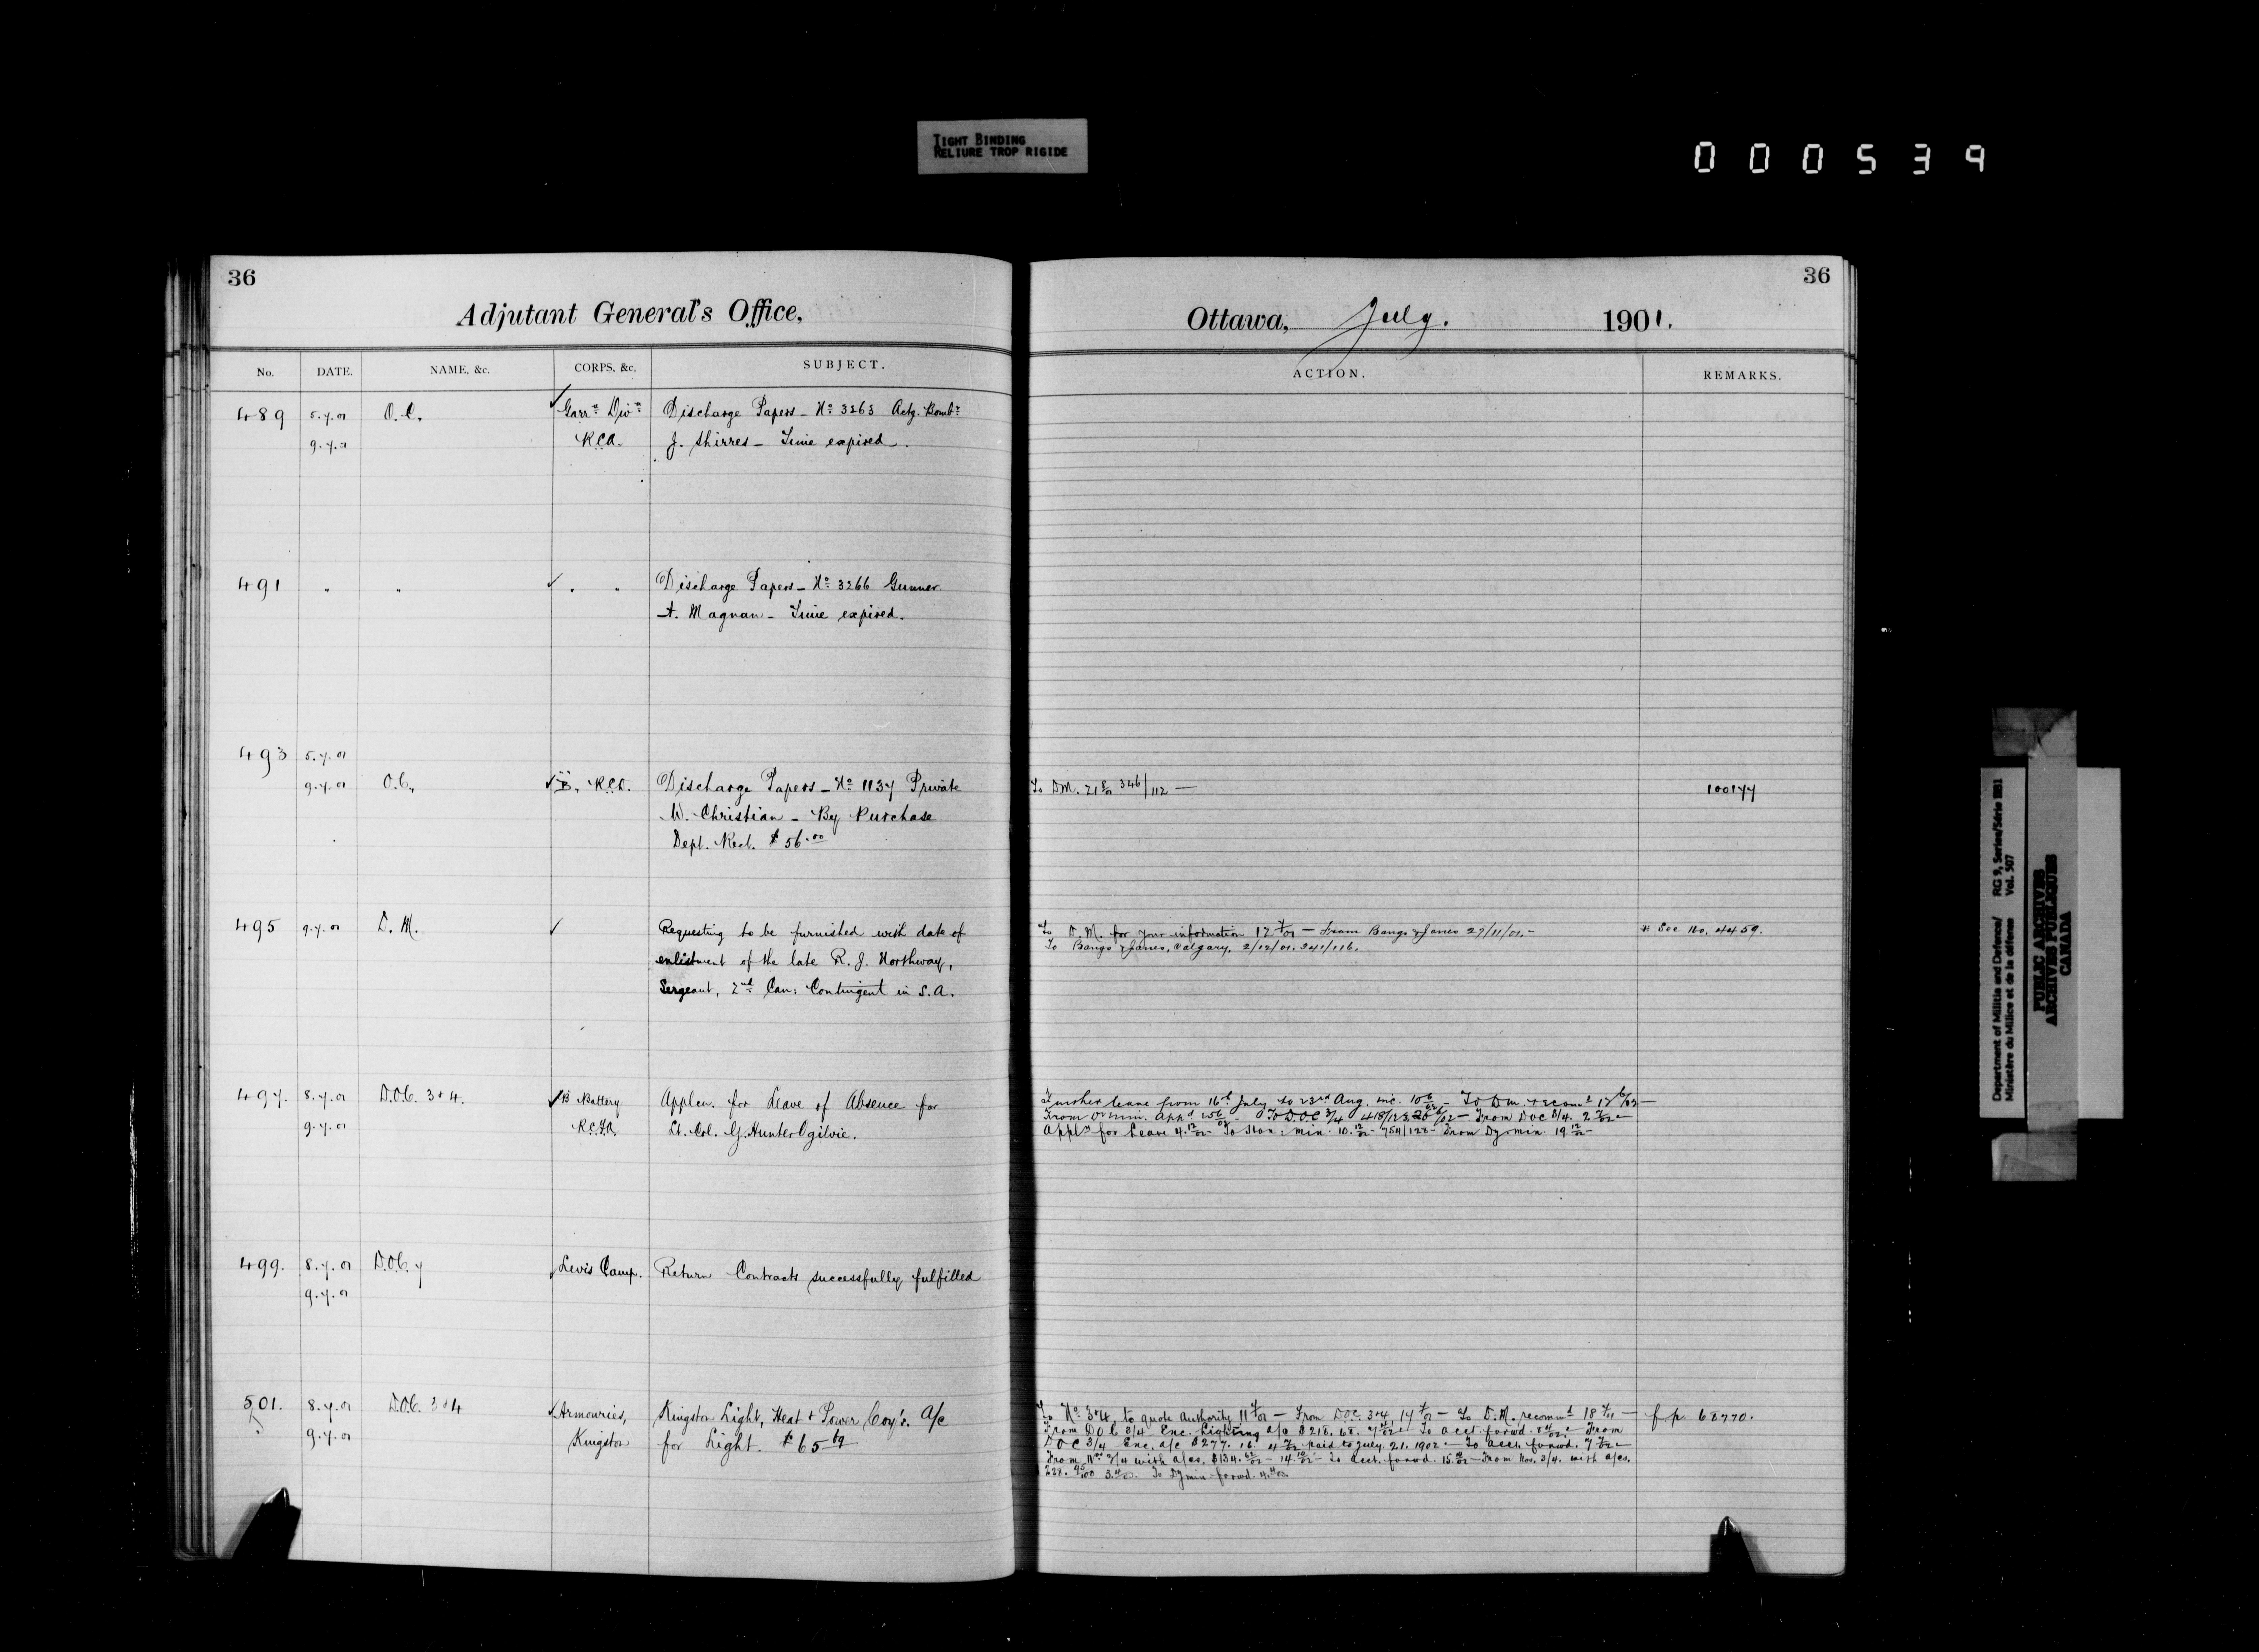 TIGHT BINDING
RELIURE TROP RIGIDE
000539
36
Adjutant General's Office,
No. DATE. NAME, &c. CORPS, &c. SUBJECT.
489 5.7.01 O.C. ✓ Garrn Divn Discharge Papers - No 3263 Actg. Bombr
9.7.01 R.C.A. J. Shirres - Time expired.
491 " " ✓ " " Discharge Papers - No 3266 Gunner
A. Magnan - Time expired.
493 5.7.01
9.7.01 O.C. ✓ "B", R.C.D. Discharge Papers - No 1137 Private
W. Christian - By Purchase
Dept. Rect. $56.00
495 9.7.01 D.M. ✓ Requesting to be furnished with date of
enlistment of the late R. J. Northway,
Sergeant, 2nd Can: Contingent in S.A.
497. 8.7.01 D.O.C. 3+4. ✓ B Battery Applcn. for Leave of Absence for
9.7.01 R.C.F.A. Lt. Col. G. Hunter Ogilvie.
499. 8.7.01 D.O.C. 7 ✓ Levis Camp. Return Contracts successfully fulfilled
9.7.01
501. 8.7.01 D.O.C. 3+4 ✓ Armouries, Kingston Light, Heat + Power Coy's. A/c
9.7.01 Kingston for Light. $65 69
36
Ottawa, July. 1901.
ACTION. REMARKS.
To DM. 21 8/01 346/112 — 100177
To D.M. for your information 17 7/01 — From Bangs & Janes 27/11/01. — * See No. 4459.
To Bangs & Janes, Calgary, 2/12/01. 241/116.
Further leave from 16th July to 23rd Aug. inc. 10 6/02 — To DM recomd 17 6/02 —
From Dr min. Appd To D.O.C 3/4 418/123 — From DOC 3/4. 2 7/02 —
Appln for Leave 4. 12/02 — To Hon: Min. 10. 12/02 — 754/122 — From Dy min 19. 12/02 —
To No 3+4, to quote authority 11 7/01 — From DOC. 3+4, 17 7/01 — To D.M. recommd 18 7/01 — f.p. 68770.
From D.O.C 3/4 Enc. Lighting a/c $218. To acct. forwd. From
DOC 3/4 Enc. a/c $277. 16. 4 7/02 paid to July. 21. 1902 — To acct. forwd. 7 7/02 —
From Nos 3/4 with a/cs. $134. 14. 10/02 — To Acct. forwd. 15. 10/02 — From Nos. 3/4. with a/cs.
228. To Dy min forwd. 4.
Department of Militia and Defence/ RG 9, Series/Série IIB1
Ministère du Milice et de la défense Vol. 507
PUBLIC ARCHIVES
ARCHIVES PUBLIQUES
CANADA